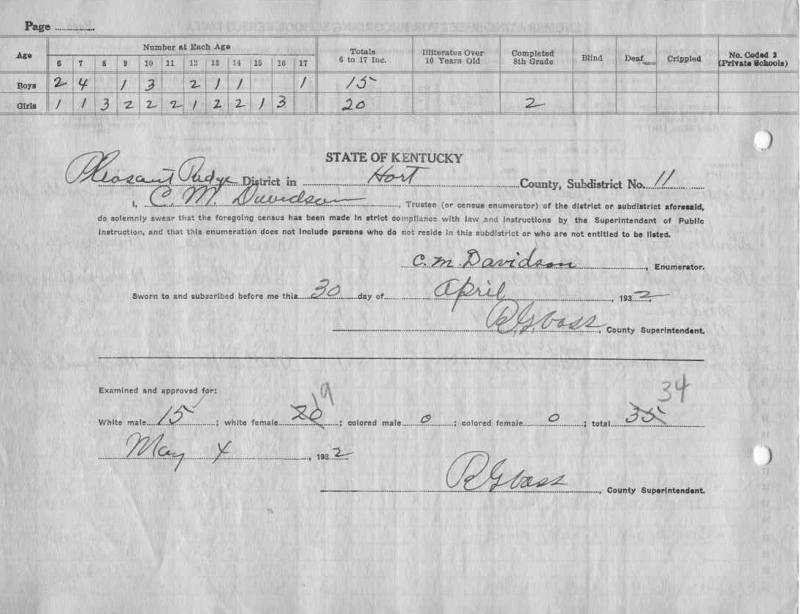 Page
Age Number at Each Age Totals 6 to 17 Inc. Illiterates Over 10 Years Old Completed 8th Grade Blind Deaf Crippled No. Coded 3 (Private Schools)
6 7 8 9 10 11 12 13 14 15 16 17
Boys 2 4 1 3 2 1 1 1 15
Girls 1 1 3 2 2 2 1 2 2 1 3 20 2
STATE OF KENTUCKY
Pleasant Ridge District in Hart County, Subdistrict No. 11
I, C. M. Davidson, Trustee (or census enumerator) of the district or subdistrict aforesaid,
do solemnly swear that the foregoing census has been made in strict compliance with law and instructions by the Superintendent of Public
Instruction, and that this enumeration does not include persons who do not reside in this subdistrict or who are not entitled to be listed.
C. M. Davidson, Enumerator.
Sworn to and subscribed before me this 30 day of April, 1932
County Superintendent.
Examined and approved for:
19 34
White male 15; white female 20; colored male 0; colored female 0; total 35
May 4, 1932
County Superintendent.